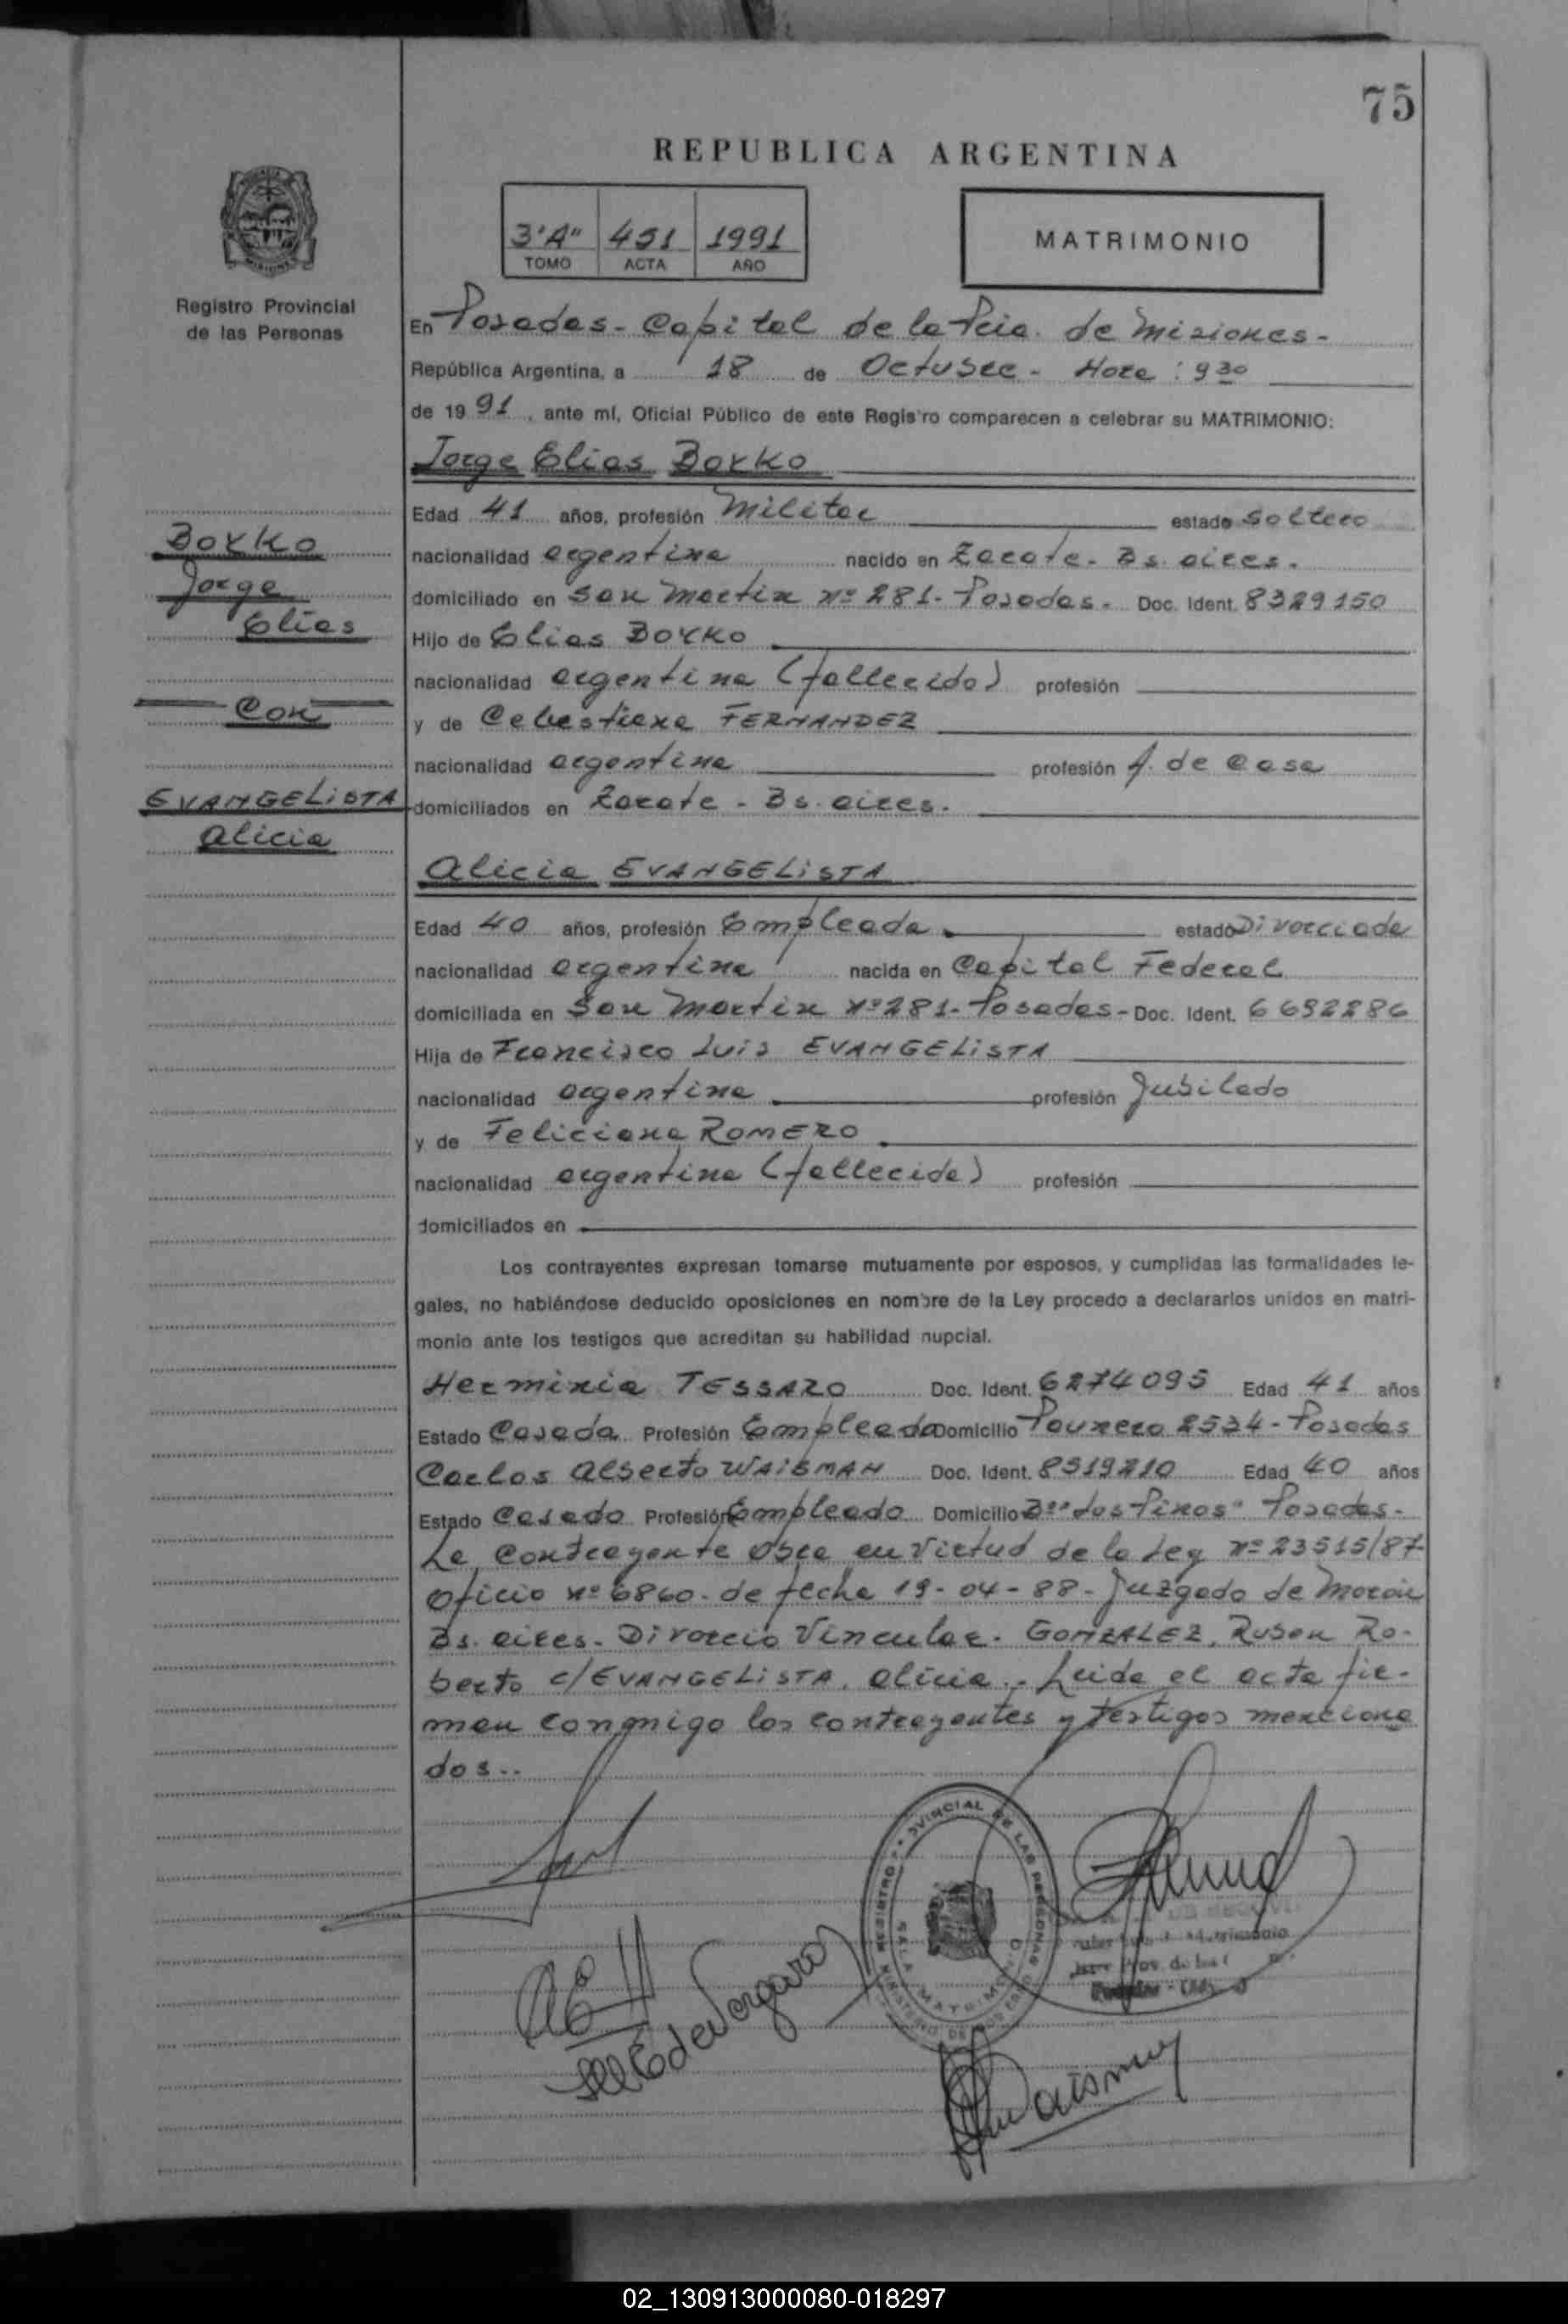 75
REPUBLICA ARGENTINA
3"A" 451 1991
TOMO ACTA AÑO
MATRIMONIO
Registro Provincial
de las Personas
En Posadas - Capital de la Pcia. de Misiones -
República Argentina, a 18 de Octubre - Hora : 9 30
de 19 91, ante mí, Oficial Público de este Registro comparecen a celebrar su MATRIMONIO:
Jorge Elias BOYKO
Edad 41 años, profesión Militar estado Soltero
nacionalidad argentina nacido en Zarate - Bs. aires.
domiciliado en San Martin Nº 281 - Posadas. Doc. Ident. 8329150
Hijo de Elias BOYKO
nacionalidad argentina (fallecido) profesión
y de Celestiana FERNANDEZ
nacionalidad argentina profesión A. de Casa
domiciliados en Zarate - Bs. aires.
BOYKO
Jorge
Elias
Con
EVANGELISTA
Alicia
Alicia EVANGELISTA
Edad 40 años, profesión Empleada estado Divorciada
nacionalidad argentina nacida en Capital Federal
domiciliada en San Martin Nº 281 - Posadas - Doc. Ident. 6692286
Hija de Francisco Luis EVANGELISTA
nacionalidad argentina profesión Jubilado
y de Feliciana ROMERO
nacionalidad argentina (fallecida) profesión
domiciliados en
Los contrayentes expresan tomarse mutuamente por esposos, y cumplidas las formalidades le-
gales, no habiéndose deducido oposiciones en nombre de la Ley procedo a declararlos unidos en matri-
monio ante los testigos que acreditan su habilidad nupcial.
Herminia TESSARO Doc. Ident. 6274095 Edad 41 años
Estado Casada Profesión Empleada Domicilio 2534 - Posadas
Carlos Alberto WAISMAN Doc. Ident. 8519210 Edad 40 años
Estado Casado Profesión Empleado Domicilio Bº "Los Pinos" Posadas -
La contrayente obra en virtud de la Ley Nº 23515/87
Oficio Nº 6860 - de fecha 19 - 04 - 88 - Juzgado de Morón
Bs. aires - Divorcio Vincular. GONZALEZ, Ruben Ro-
berto c/EVANGELISTA, Alicia.. Leida el acta fir-
man conmigo los contrayentes y testigos menciona
dos..
REGISTRO PROVINCIAL DE LAS PERSONAS
SALA MATRIMONIO
Waisman
02_130913000080-018297